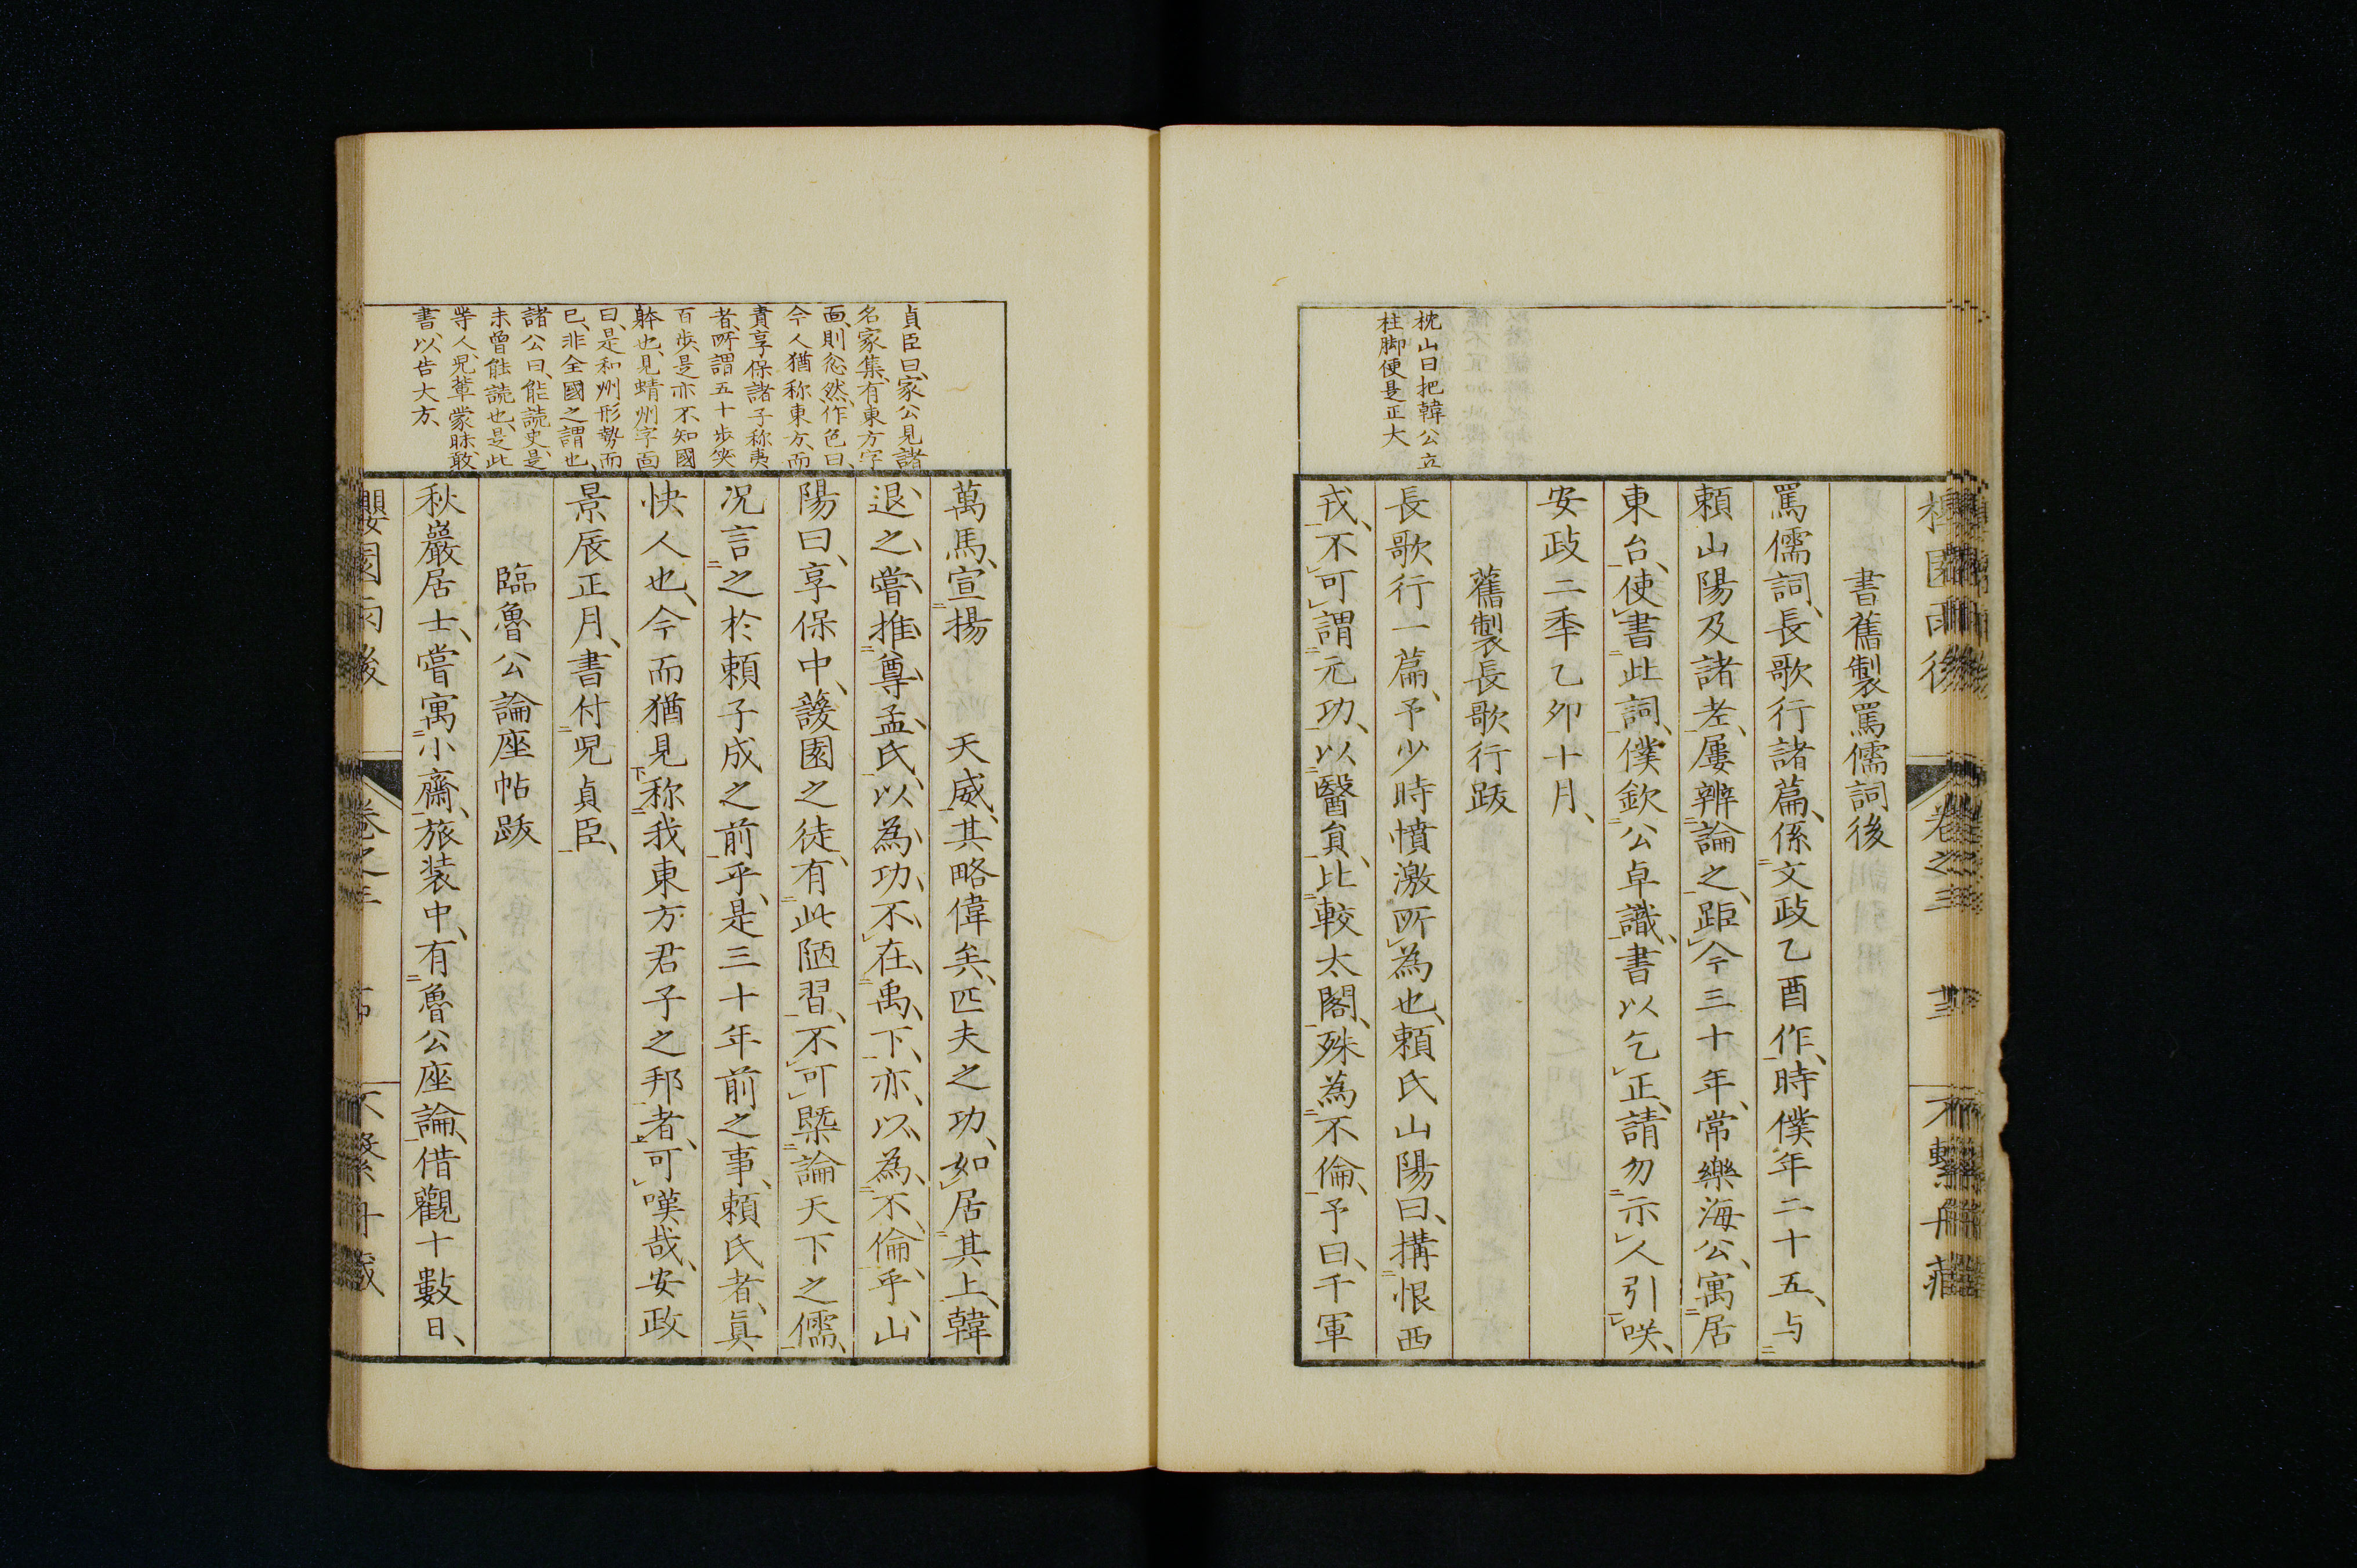 書舊製罵儒詞後
罵儒詞、長歌行諸篇、係文政乙酉作、時僕年二十五、与
頼山陽及諸老、屢辨論之、距今三十年、常樂海公、寓居
東台、使書此詞、僕欽公卓識、書以乞正、請勿示人引咲、
安政二季乙夘十月、
舊製長歌行跋
長歌行一篇、予少時憤激所為也、頼氏山陽曰、搆恨西
戎、不可謂元功、以醫負比較太閤、殊為不倫、予曰、千軍
枕山曰把韓公立
柱脚便是正大
卷之三
萬馬、宣揚　天威、其略偉矣、匹夫之功、如居其上、韓
退之、嘗推尊孟氏、以為功、不在禹下、亦以為不倫乎、山
陽曰、享保中、護園之徒、有此陋習、不可槩論天下之儒、
况言之於頼子成之前乎、是三十年前之事、頼氏者、眞
快人也、今而猶見称我東方君子之邦者、可嘆哉、安政
景辰正月、書付児貞臣、
臨魯公論座帖跋
秋巖居士、嘗寓小齋、旅装中、有魯公座論、借觀十數日、
貞臣曰、家公見諸
名家集、有東方字
面、則忿然作色曰、
今人猶称東方、而
責享保諸子称夷
者、所謂五十歩笑
百歩、是亦不知國
躰也、見蜻州字面
曰、是和州形勢而
已、非全國之謂也、
諸公曰、能読史、是
未曾能読也、是此
等人、児輩蒙昧、敢
書、以告大方、